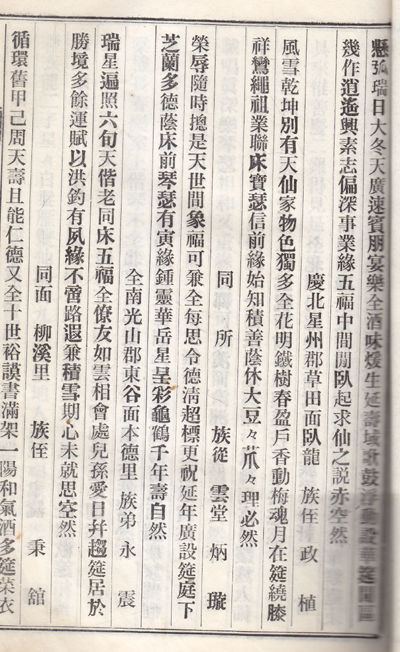 懸弧瑞日大冬天廣速賓朋宴樂全酒味煖生延壽域歌鼓浮動設華筵閒區
幾作逍遙興素志偏深事業緣五福中間閒臥起求仙之說亦空然
慶北星州郡草田面臥龍 族侄 政植
風雪乾坤別有天仙家物色獨多全花明鐵樹春盈戶香動梅魂月在筵繞膝
祥鸞繩祖業聯床寶瑟信前緣始知積善蔭休大豆々苽々理必然
同所 族從 雲堂 炳璇
榮辱隨時摠是天世間象福可兼全每思令德淸超標更祝延年廣設筵庭下
芝蘭多德蔭床前琴瑟有寅緣鍾靈華岳星呈彩龜鶴千年壽自然
全南光山郡東谷面本德里 族弟 永震
瑞星遍照六旬天偕老同床五福全僚友如雲相會處兒孫愛日幷趨筵居於
勝境多餘運賦以洪鈞有夙緣不啻路遐兼積雪期心未就思空然
同面 柳溪里 族侄 秉舘
循環舊甲已周天壽且能仁德又全十世裕謨書滿架一陽和氣酒多筵菜衣